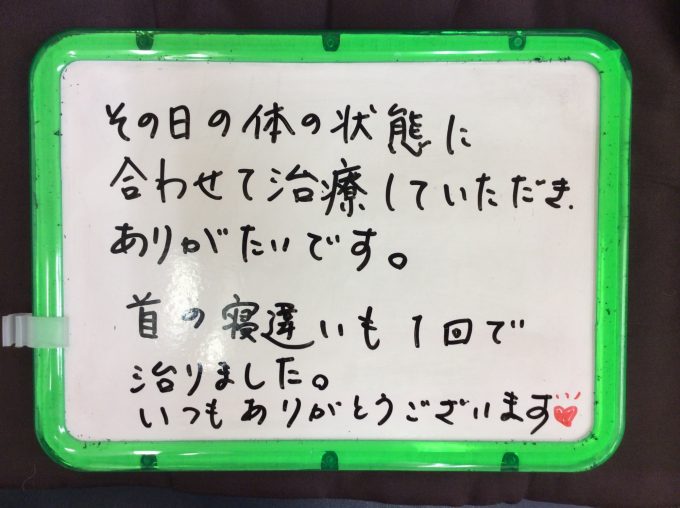 その日の体の状態に
合わせて治療していただき、
ありがたいです。
首の寝違いも1回で
治りました。
いつもありがとうございます